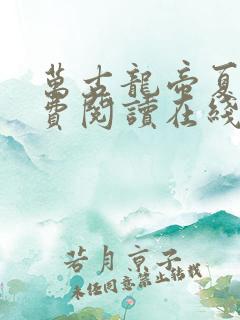 萬古龍帝夏
費閱讀在綫
若月京子
未經同意禁止轉載